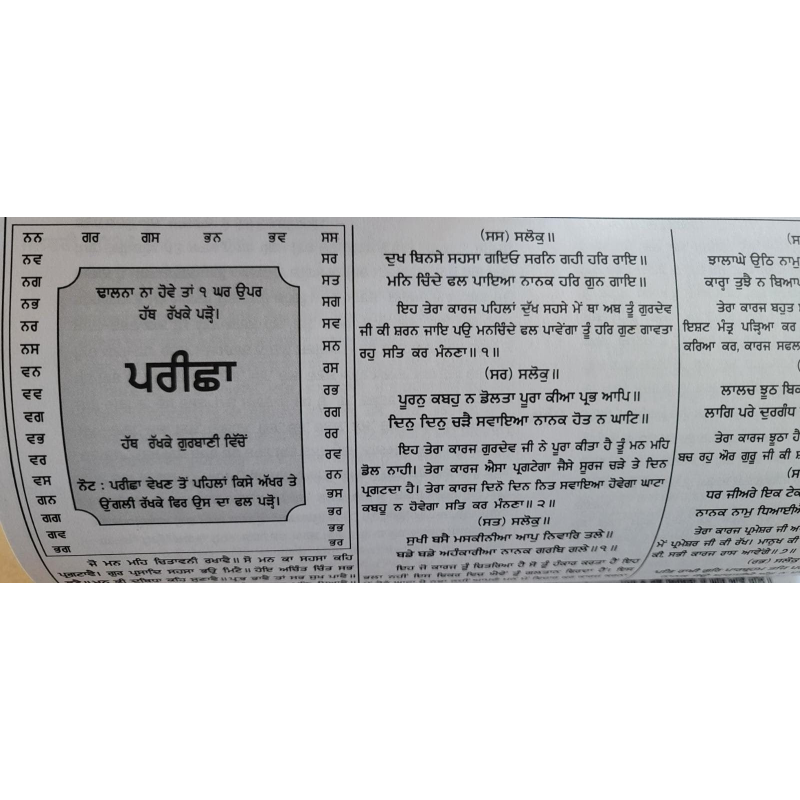 ਨਨ ਗਰ ਗਸ ਭਨ ਭਵ ਸਸ
ਨਵ
ਨਗ
ਨਭ
ਨਰ
ਨਸ
ਵਨ
ਵਵ
ਵਗ
ਵਭ
ਵਰ
ਵਸ
ਗਨ
ਗਗ
ਗਵ
ਭਗ
ਢਾਲਨਾ ਨਾ ਹੋਵੇ ਤਾਂ ੧ ਘਰ ਉਪਰ
ਹੱਥ ਰੱਖਕੇ ਪੜ੍ਹੋ।
ਪਰੀਛਾ
ਹੱਥ ਰੱਖਕੇ ਗੁਰਬਾਣੀ ਵਿੱਚੋਂ
ਨੋਟ : ਪਰੀਛਾ ਵੇਖਣ ਤੋਂ ਪਹਿਲਾਂ ਕਿਸੇ ਅੱਖਰ ਤੇ
ਉਂਗਲੀ ਰੱਖਕੇ ਫਿਰ ਉਸ ਦਾ ਫਲ ਪੜੋ।
ਸਰ
ਸਤ
ਸਗ
ਸਵ
ਸਨ
ਰਸ
ਰਭ
ਰਗ
ਰਰ
ਰਵ
ਰਨ
ਭਸ
ਭਰ
ਭਭ
ਭਰ
ਜੋ ਮਨ ਮਹਿ ਚਿਤਾਵਨੀ ਰਖਾਵੈ॥ ਸੋ ਮਨ ਕਾ ਸਹਸਾ ਕਹਿ
(ਸਸ) ਸਲੋਕੁ॥
ਦੁਖ ਬਿਨਸੇ ਸਹਸਾ ਗਇਓ ਸਰਨਿ ਗਹੀ ਹਰਿ ਰਾਇ॥
ਮਨਿ ਚਿੰਦੇ ਫਲ ਪਾਇਆ ਨਾਨਕ ਹਰਿ ਗੁਨ ਗਾਇ॥
ਇਹ ਤੇਰਾ ਕਾਰਜ ਪਹਿਲਾਂ ਦੁੱਖ ਸਹਸੇ ਮੇਂ ਥਾ ਅਬ ਤੂੰ ਗੁਰਦੇਵ
ਜੀ ਕੀ ਸ਼ਰਨ ਜਾਇ ਪਉ ਮਨਚਿੰਦੇ ਫਲ ਪਾਵੇਂਗਾ ਤੂੰ ਹਰਿ ਗੁਣ ਗਾਵਤਾ
ਰਹੁ ਸਤਿ ਕਰ ਮੰਨਣਾ॥੧॥
(ਸਰ) ਸਲੋਕੁ॥
ਪੂਰਨੁ ਕਬਹੁ ਨ ਡੋਲਤਾ ਪੂਰਾ ਕੀਆ ਪ੍ਰਭ ਆਪਿ॥
ਦਿਨੁ ਦਿਨੁ ਚੜੈ ਸਵਾਇਆ ਨਾਨਕ ਹੋਤ ਨ ਘਾਟਿ॥
ਇਹ ਤੇਰਾ ਕਾਰਜ ਗੁਰਦੇਵ ਜੀ ਨੇ ਪੂਰਾ ਕੀਤਾ ਹੈ ਤੂੰ ਮਨ ਮਹਿ
ਡੋਲ ਨਾਹੀ। ਤੇਰਾ ਕਾਰਜ ਐਸਾ ਪ੍ਰਗਟੇਗਾ ਜੈਸੇ ਸੂਰਜ ਚੜੇ ਤੇ ਦਿਨ
ਪ੍ਰਗਟਦਾ ਹੈ। ਤੇਰਾ ਕਾਰਜ ਦਿਨੋ ਦਿਨ ਨਿਤ ਸਵਾਇਆ ਹੋਵੇਗਾ ਘਾਟਾ
ਕਬਹੂ ਨ ਹੋਵੇਗਾ ਸਤਿ ਕਰ ਮੰਨਣਾ॥੨॥
(ਸਤ) ਸਲੋਕੁ॥
ਸੁਖੀ ਬਸੈ ਮਸਕੀਨੀਆ ਆਪੁ ਨਿਵਾਰਿ ਤਲੇ॥
ਬਡੇ ਬਡੇ ਅਹੰਕਾਰੀਆ ਨਾਨਕ ਗਰਬਿ ਗਲੇ॥੧॥
ਇਹ ਜੋ ਕਾਰਜ ਤੂੰ ਚਿਤਰਿਆ ਹੈ ਜੋ ਤੂੰ ਹੰਕਾਰ ਕਰਤਾ ਹੈਂ ਇਹ
ਝਾਲਾਘੇ ਉਠਿ ਨਾਮੁ
ਕਾਰ੍ਹਾ ਤੁਝੈ ਨ ਬਿਆਪ
ਤੇਰਾ ਕਾਰਜ ਬਹੁਤ
ਇਸ਼ਟ ਮੰਤ੍ਰ ਪੜ੍ਹਿਆ ਕਰ
ਕਰਿਆ ਕਰ, ਕਾਰਜ ਸਫਲ
ਲਾਲਚ ਝੂਠ ਬਿਕ
ਲਾਗਿ ਪਰੇ ਦੁਰਗੰਧ
ਤੇਰਾ ਕਾਰਜ ਝੂਠਾ ਹੈ
ਬਚ ਰਹੁ ਔਰ ਗੁਰੂ ਜੀ ਕੀ
ਧਰ ਜੀਅਰੇ ਇਕ ਟੇਕ
ਨਾਨਕ ਨਾਮੁ ਧਿਆਈਐ
ਤੇਰਾ ਕਾਰਜ ਪ੍ਰਮੇਸ਼ਰ ਜੀ ਆ
ਮੇਂ ਪ੍ਰਮੇਸ਼ਰ ਜੀ ਕੀ ਰੱਖ। ਮਾਨੁਖ ਕੀ
ਕੀ, ਸਭੀ ਕਾਰਜ ਰਾਸ ਆਵੇਗੇ॥੭॥